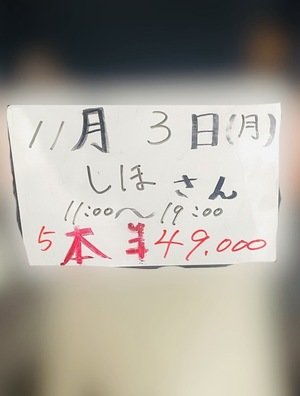 11月3日(月)
しほさん
11:00〜19:00
5本¥49.000